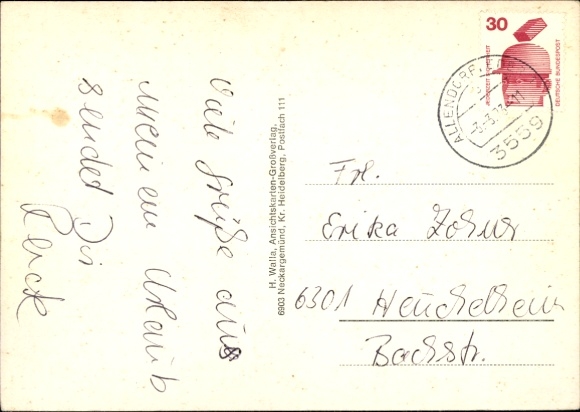 Viele Grüße aus
meinem Urlaub
sendet Dir
H. Walla, Ansichtskarten-Großverlag,
6903 Neckargemünd, Kr. Heidelberg, Postfach 111
30
JEDERZEIT SICHERHEIT
DEUTSCHE BUNDESPOST
ALLENDORF
3559
Frl.
Erika
6301 Heuchelheim
Bachstr.